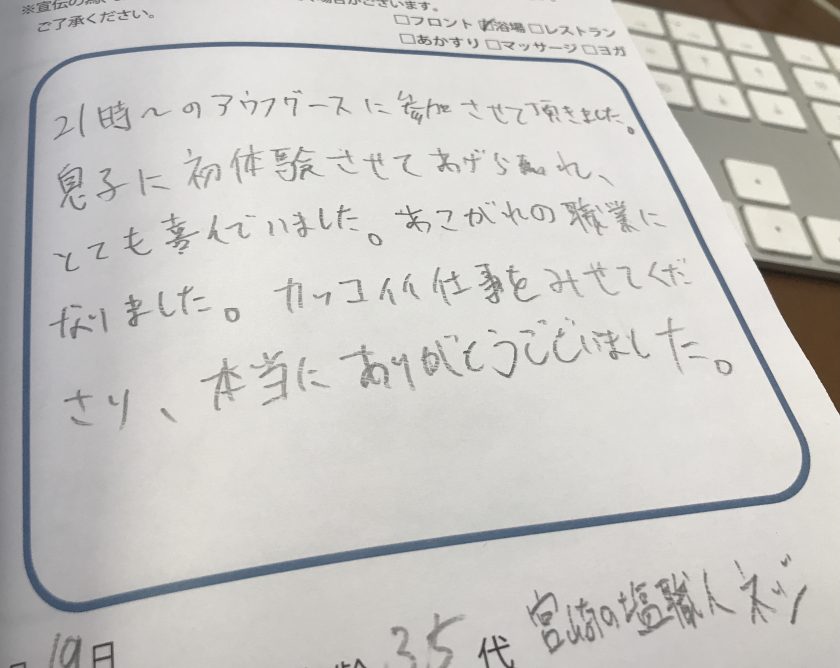 ※宣伝の
ございます。
ご了承ください。
□フロント ☑浴場 □レストラン
□あかすり □マッサージ □ヨガ
21時～のアウフグースに参加させて頂きました。
息子に初体験させてあげられ、
とても喜んでいました。あこがれの職業に
なりました。カッコイイ仕事をみせてくだ
さり、本当にありがとうございました。
19日
35代 宮崎の塩職人ネッツ